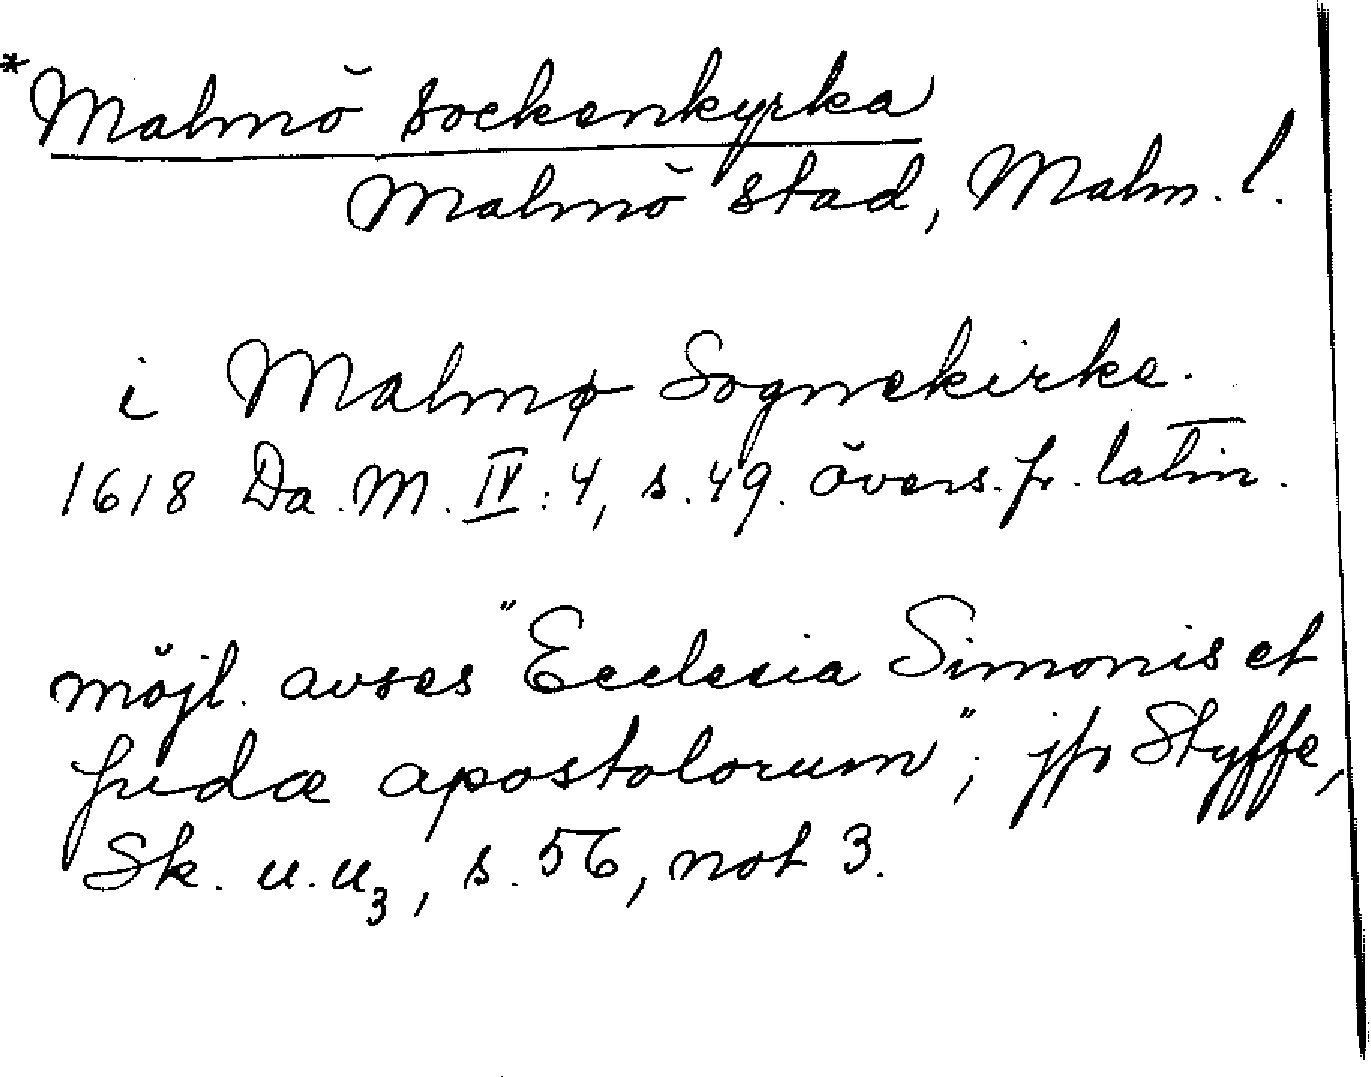 *Malmö sockenkyrka
Malmö stad, Malm. l.
i Malmø Sognekirke.
1618 Da. M. IV: 4, s. 49. övers. fr. latin.
möjl. avses "Ecclesia Simonis et
Judæ apostolorum"; jfr Styffe,
Sk. u. u3, s. 56, not 3.